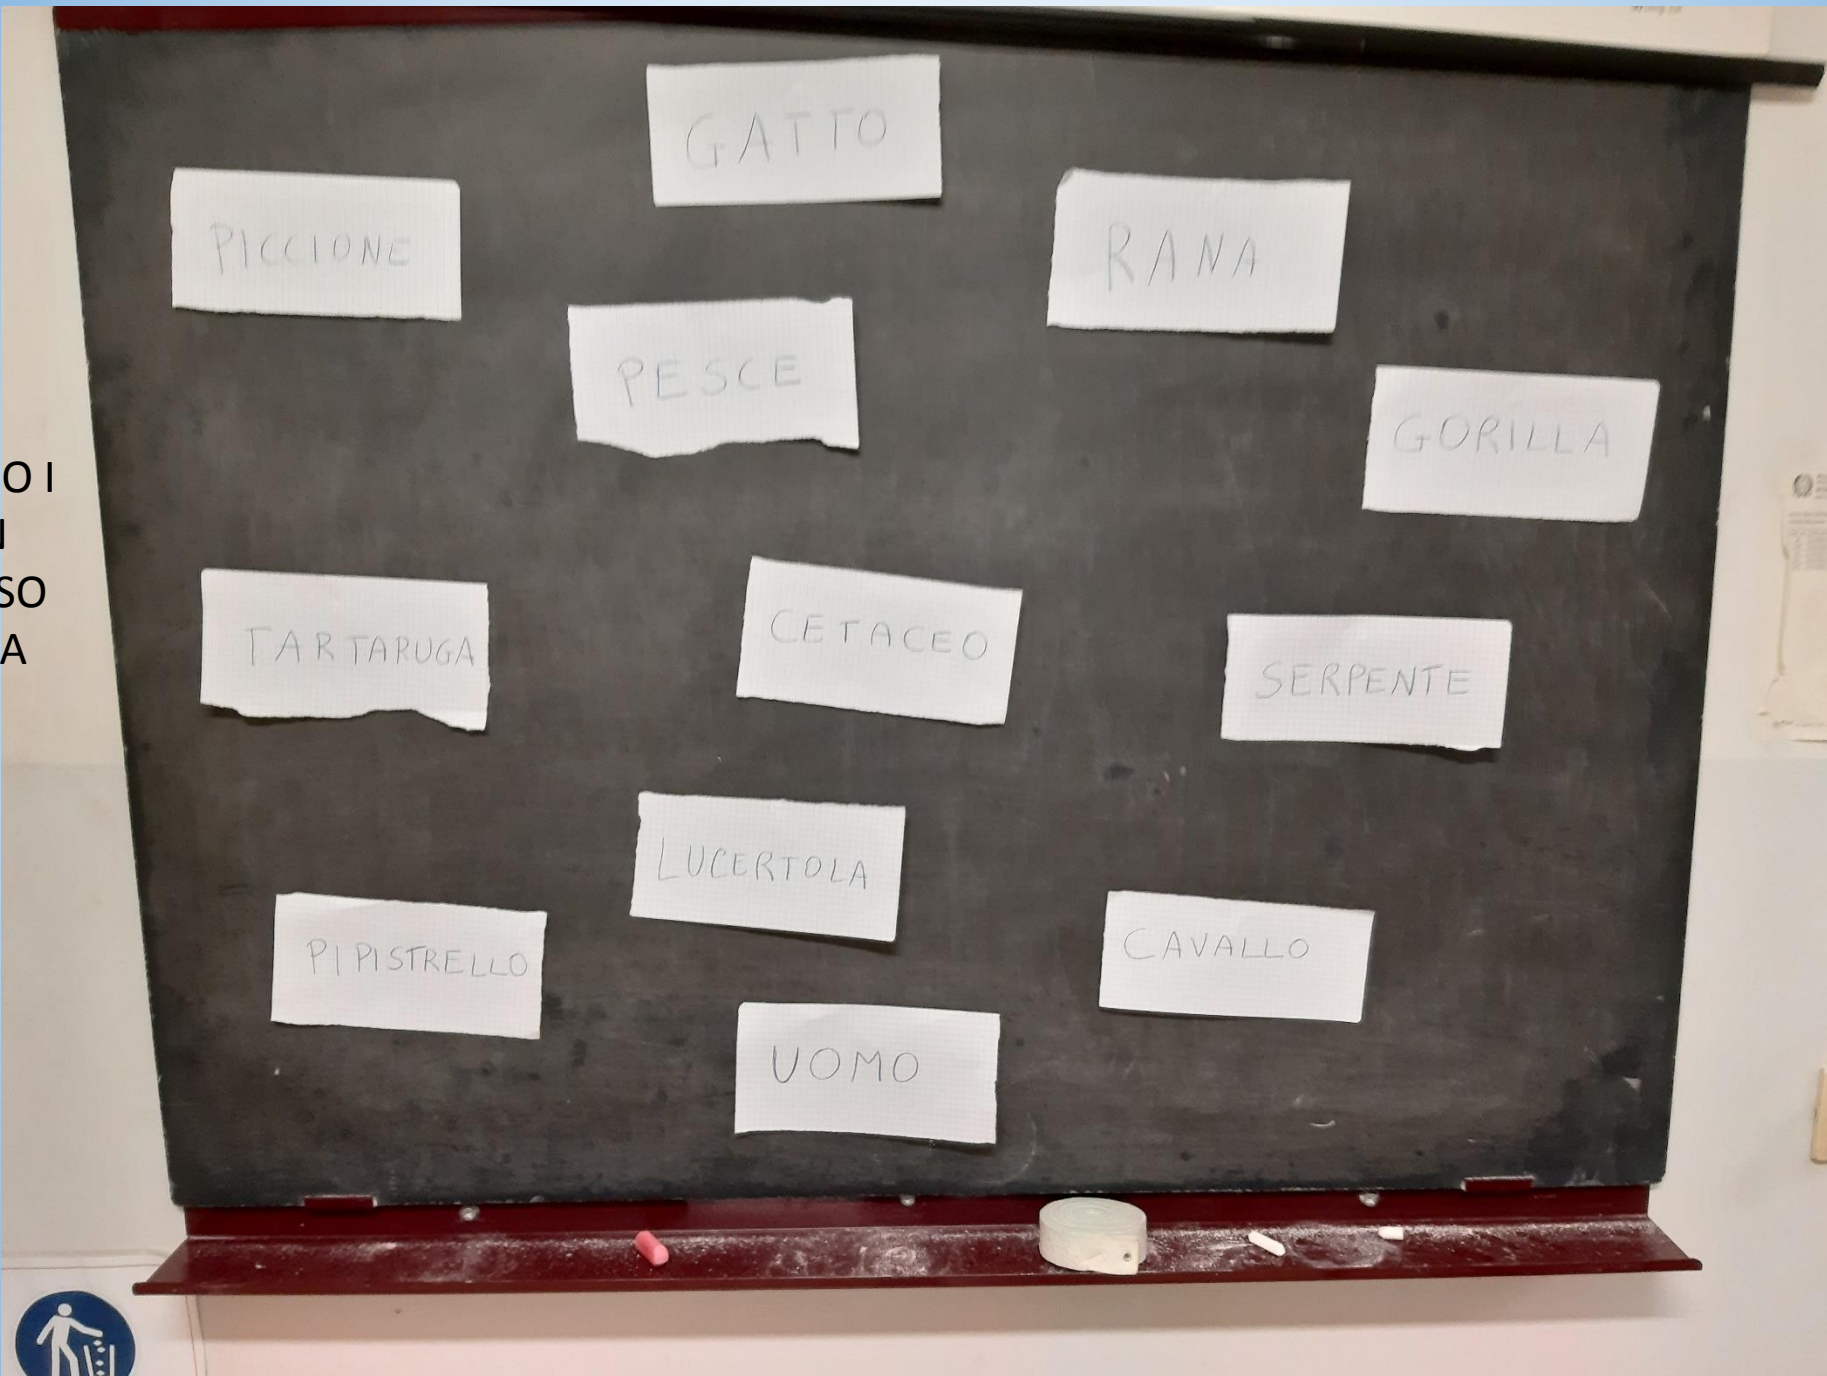 GATTO
PICCIONE
RANA
PESCE
GORILLA
TARTARUGA
CETACEO
SERPENTE
LUCERTOLA
PIPISTRELLO
CAVALLO
UOMO
O I
SO
A